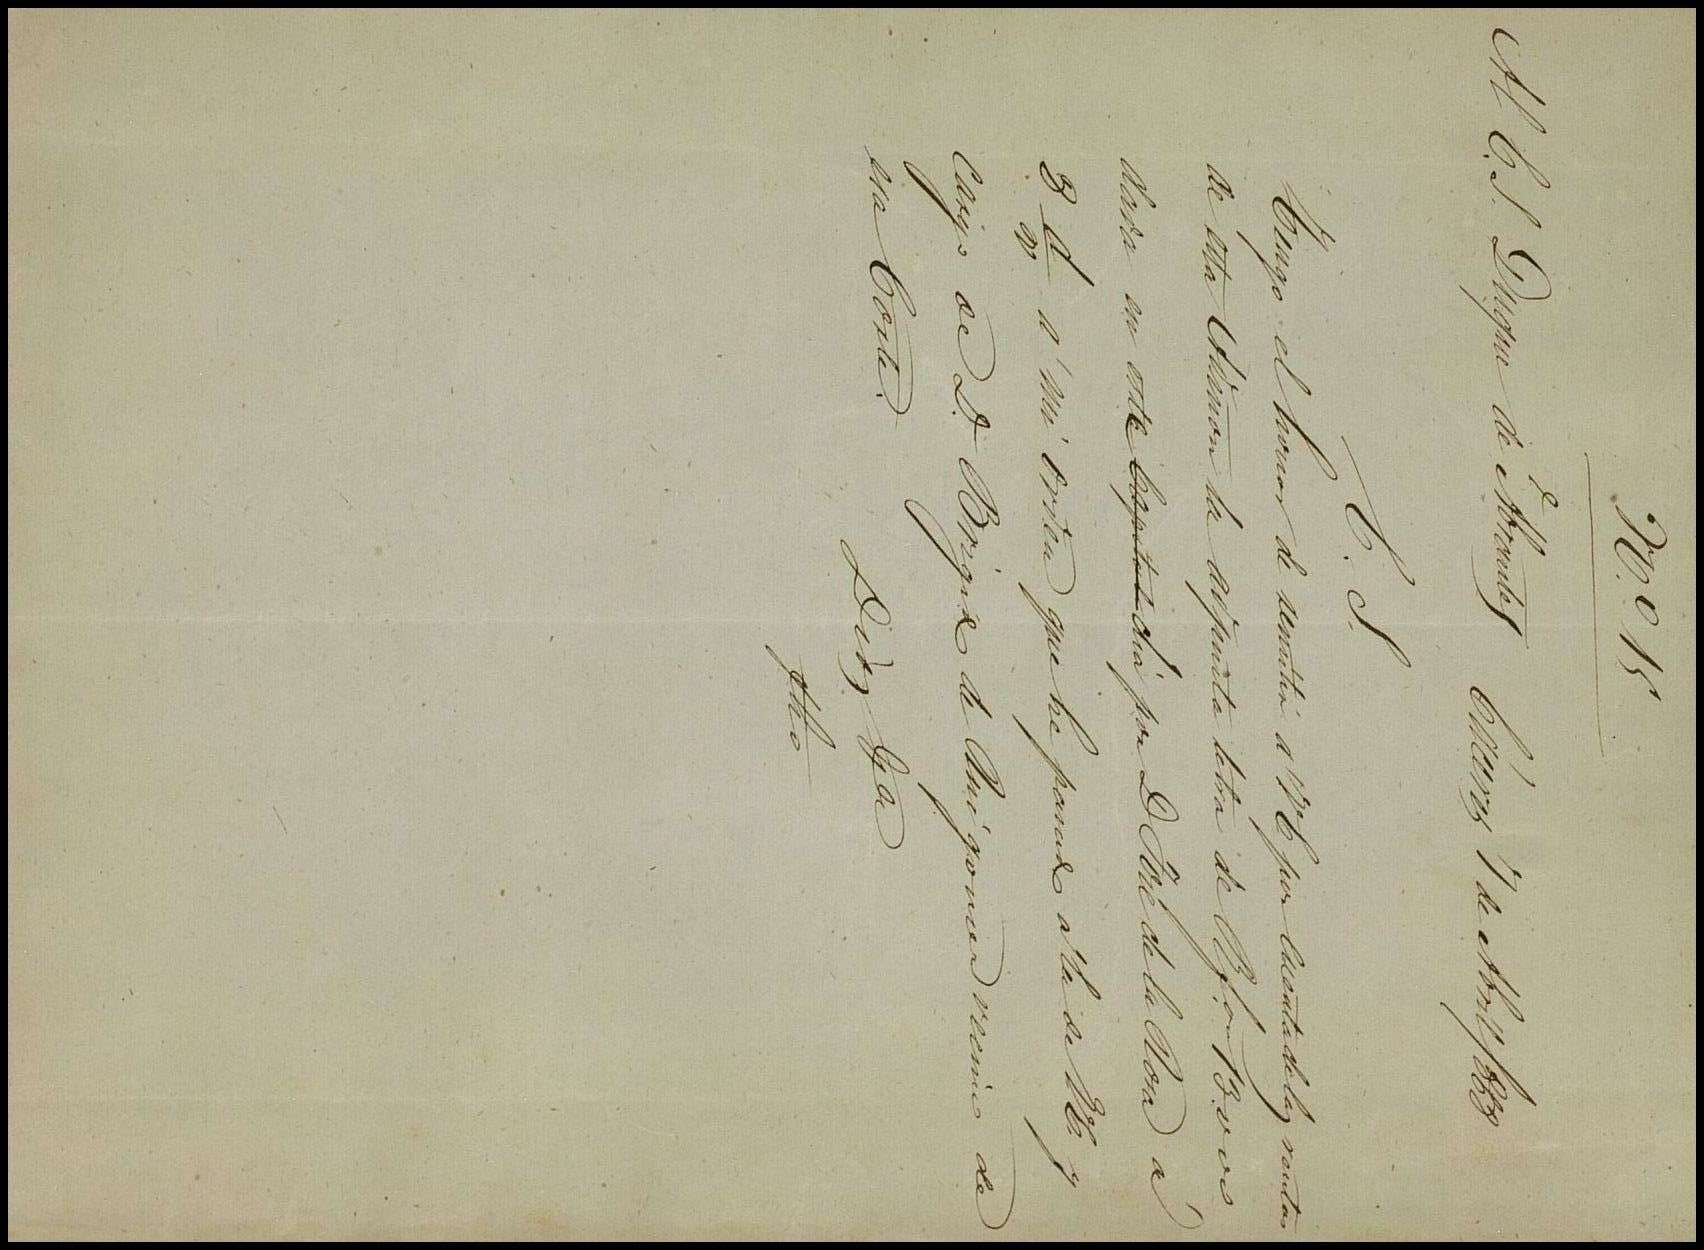 N.º 15
A. E. S. Duque de Abrantes Cáceres 7 de Abril/883
E. S.
Tengo el honor de remitir á VE por cuenta de las rentas
de esta Admon la adjunta letra de R. fon 13.000
dada en esta Capital dia por D José de la Rosa á
8 d/v á mi orden que he pasado á la de VE y
cargo de D Brigida de Amigorena vecino de
esa Corte.
Diez Gza
fho